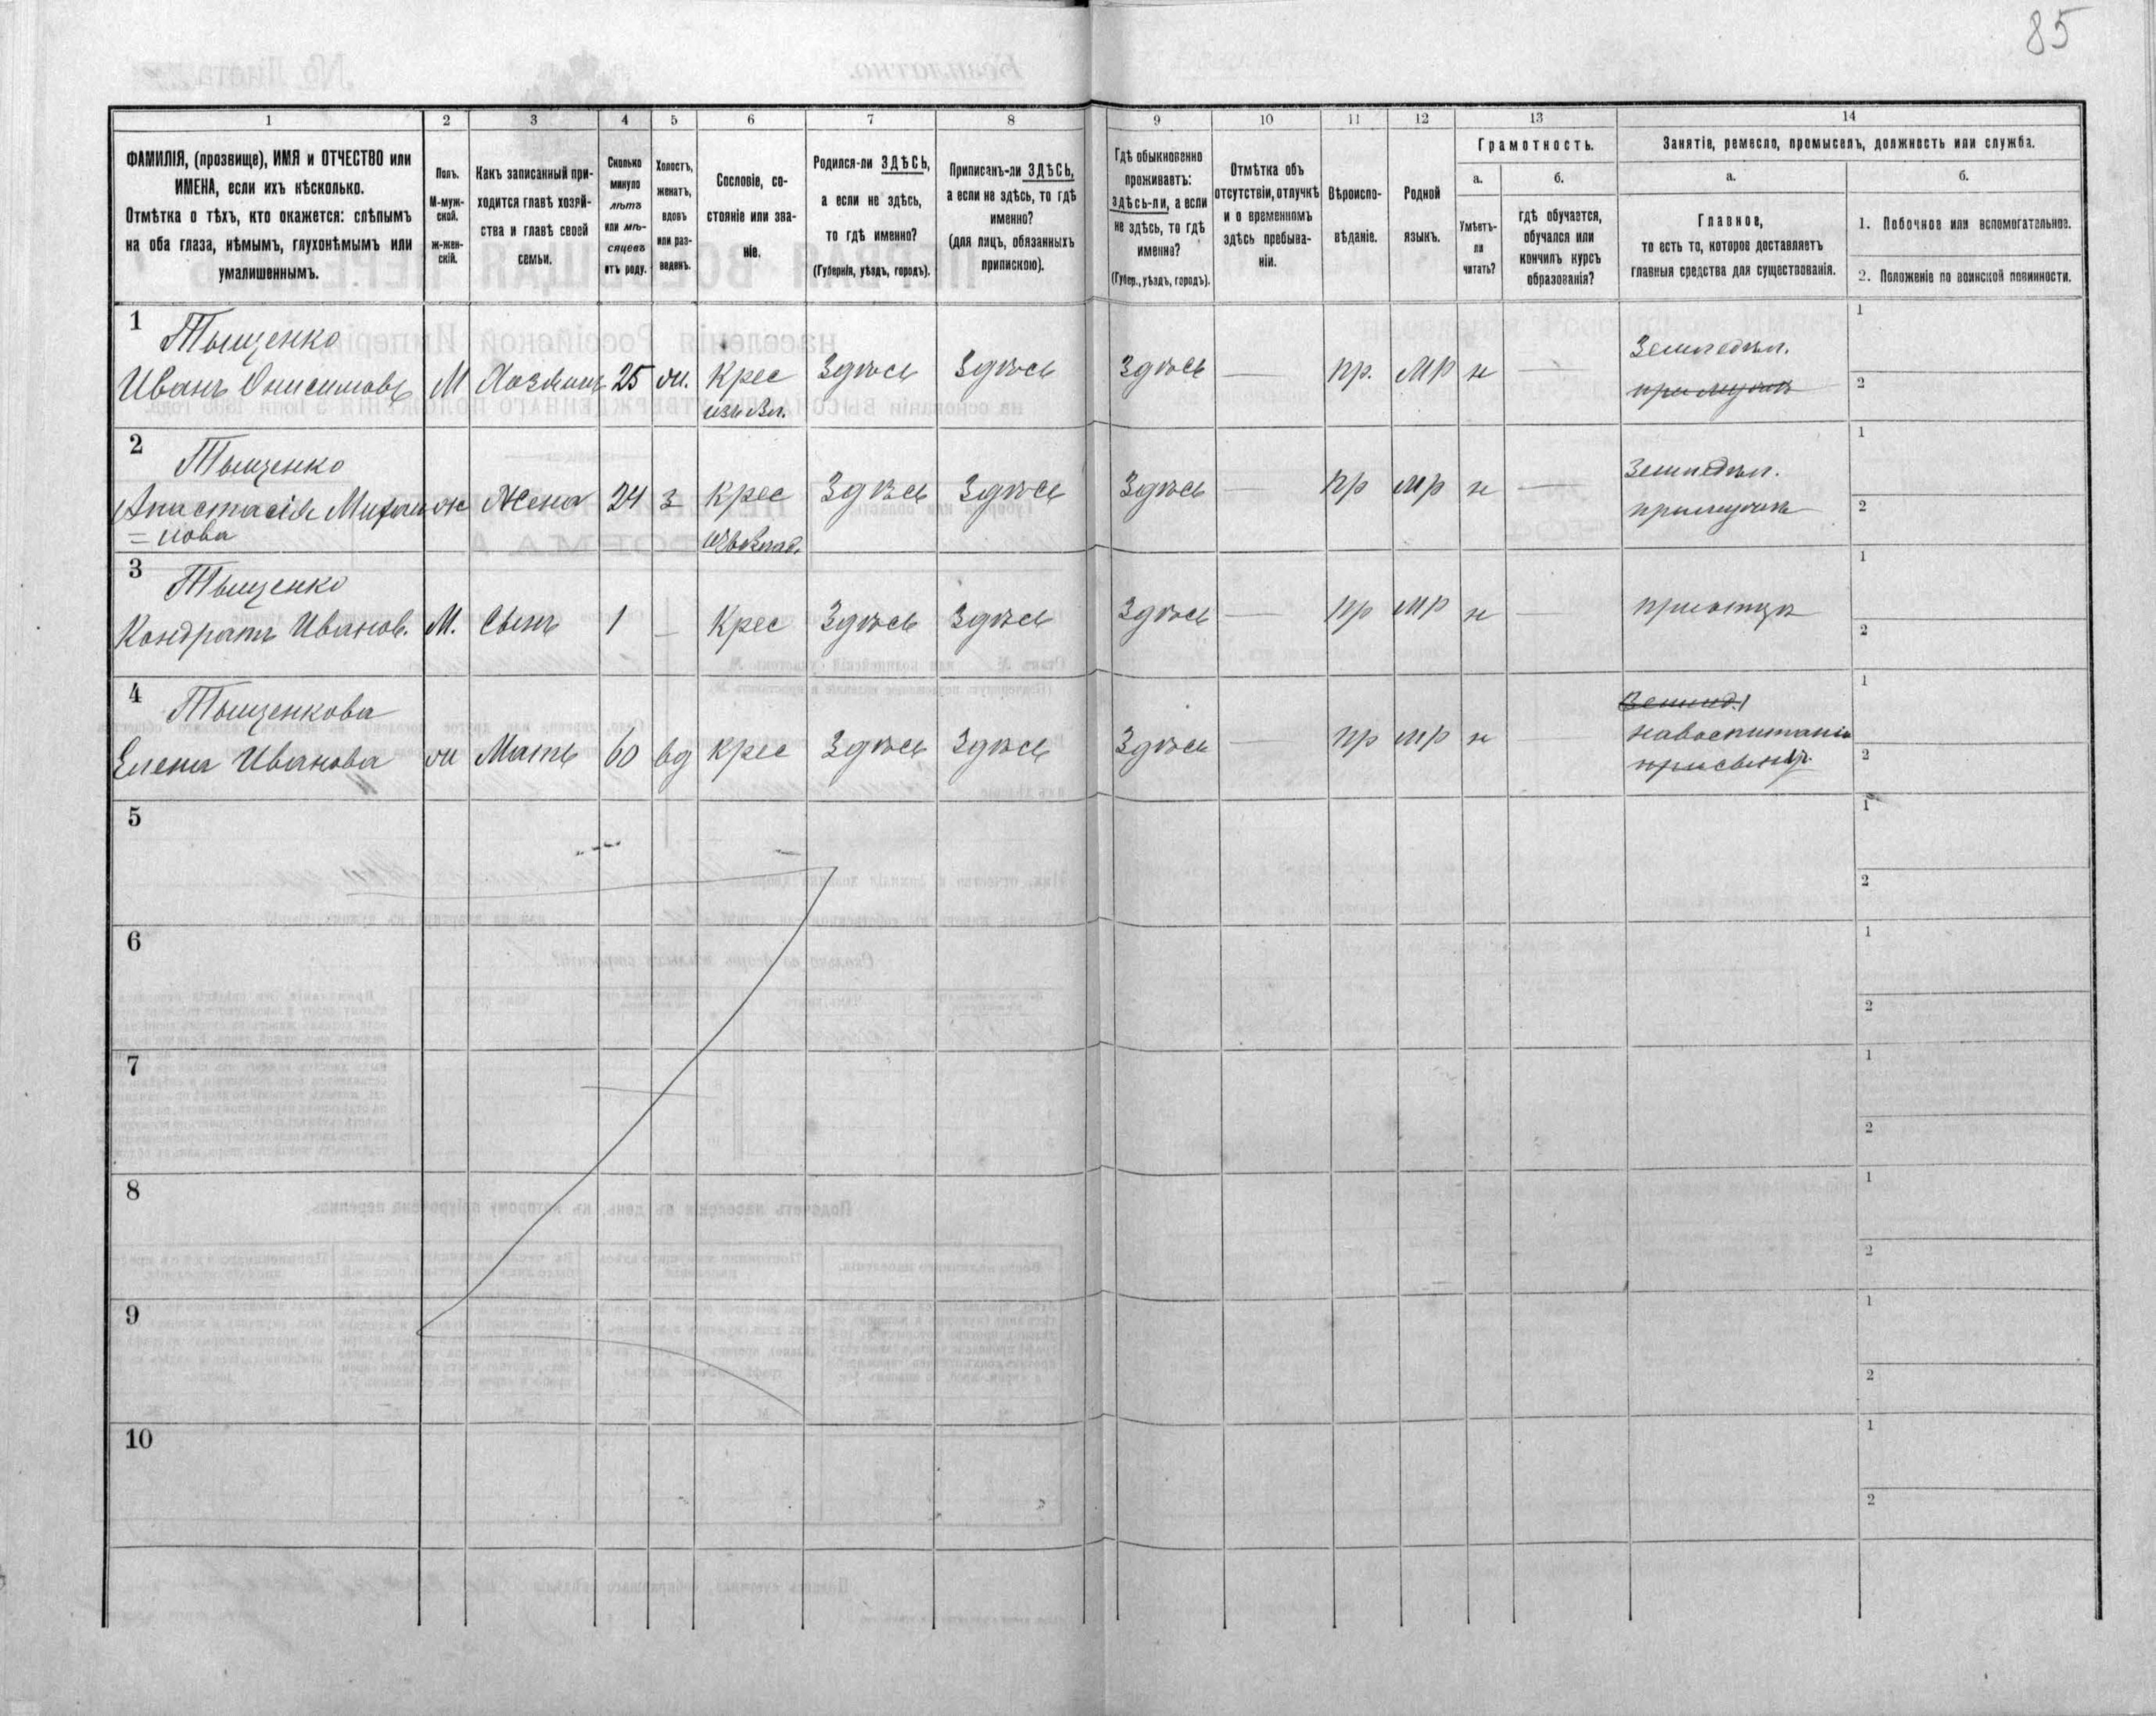 85
1
2
3
4
5
6
7
8
9
10
11
12
13
14
ФАМИЛІЯ, (прозвище), ИМЯ и ОТЧЕСТВО или
ИМЕНА, если ихъ нѣсколько.
Отмѣтка о тѣхъ, кто окажется: слѣпымъ
на оба глаза, нѣмымъ, глухонѣмымъ или
умалишеннымъ.
Полъ.
М-муж-
ской.
ж-жен-
скій.
Какъ записанный при-
ходится главѣ хозяй-
ства и главѣ своей
семьи.
Сколько
минуло
лѣтъ
или мѣ-
сяцевъ
отъ роду.
Холостъ,
женатъ,
вдовъ
или раз-
веденъ.
Сословіе, со-
стояніе или зва-
ніе.
Родился-ли ЗДѢСЬ,
а если не здѣсь,
то гдѣ именно?
(Губернія, уѣздъ, городъ).
Приписанъ-ли ЗДѢСЬ,
а если не здѣсь, то гдѣ
именно?
(для лицъ, обязанныхъ
припискою).
Гдѣ обыкновенно
проживаетъ:
здѣсь-ли, а если
не здѣсь, то гдѣ
именно?
(Губер., уѣздъ, городъ).
Отмѣтка объ
отсутствіи, отлучкѣ
и о временномъ
здѣсь пребыва-
ніи.
Вѣроиспо-
вѣданіе.
Родной
языкъ.
Грамотность.
а.
Умѣетъ-
ли
читать?
б.
гдѣ обучается,
обучался или
кончилъ курсъ
образованія?
Занятіе, ремесло, промыселъ, должность или служба.
а.
Главное,
то есть то, которое доставляетъ
главныя средства для существованія.
б.
1. Побочное или вспомогательное.
2. Положеніе по воинской повинности.
1
Тыщенко
Иванъ Онисимовъ
М
Хозяинъ
25
ж.
Крес
изъ Вл.
Здѣсь
Здѣсь
Здѣсь
—
пр.
МР
н
—
Земледѣл.
1
2
2
Тыщенко
Анастасія Михаи
= лова
ж
Жена
24
з
крес
Здѣсь
Здѣсь
Здѣсь
—
пр
мр
н
—
Земледѣл.
при мужѣ
1
2
3
Тыщенко
Кондратъ Иванов.
М.
Сынъ
1
—
Крес
Здѣсь
Здѣсь
Здѣсь
—
пр
мр
н
—
при отцѣ
1
2
4
Тыщенкова
Елена Иванова
ж
Мать
60
вд
крес
Здѣсь
Здѣсь
Здѣсь
—
пр
мр
н
—
1
2
5
1
2
6
1
2
7
1
2
8
1
2
9
1
2
10
1
2